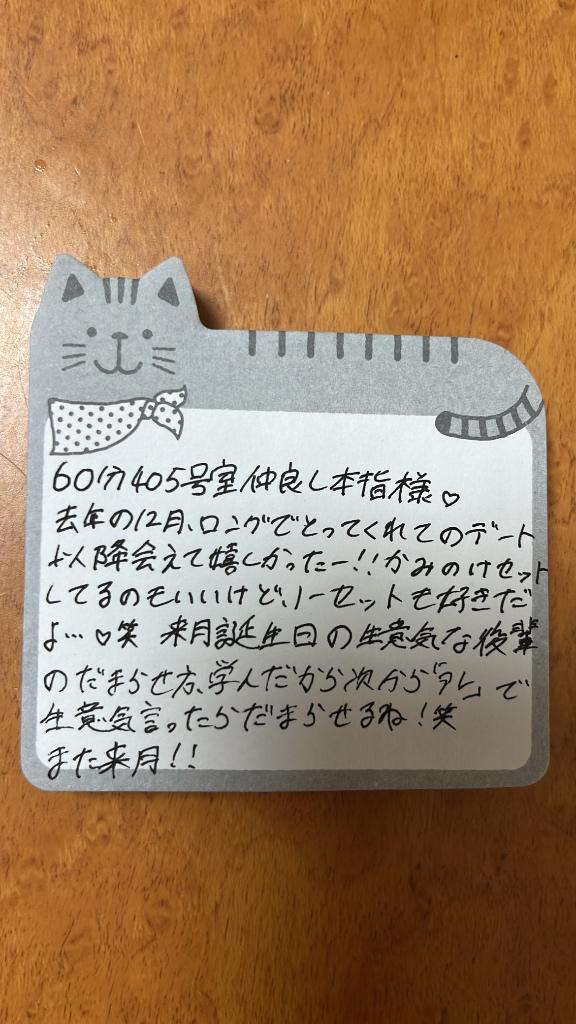 60分405号室仲良し本指様♡
去年の12月、ロングでとってくれてのデート
以降会えて嬉しかったー!!かみのけセット
してるのもいいけど、ノーセットも好きだ
よ…♡笑 来月誕生日の生意気な後輩
のだまらせ方、学んだから次から「タレ」で
生意気言ったらだまらせるね!笑
また来月!!